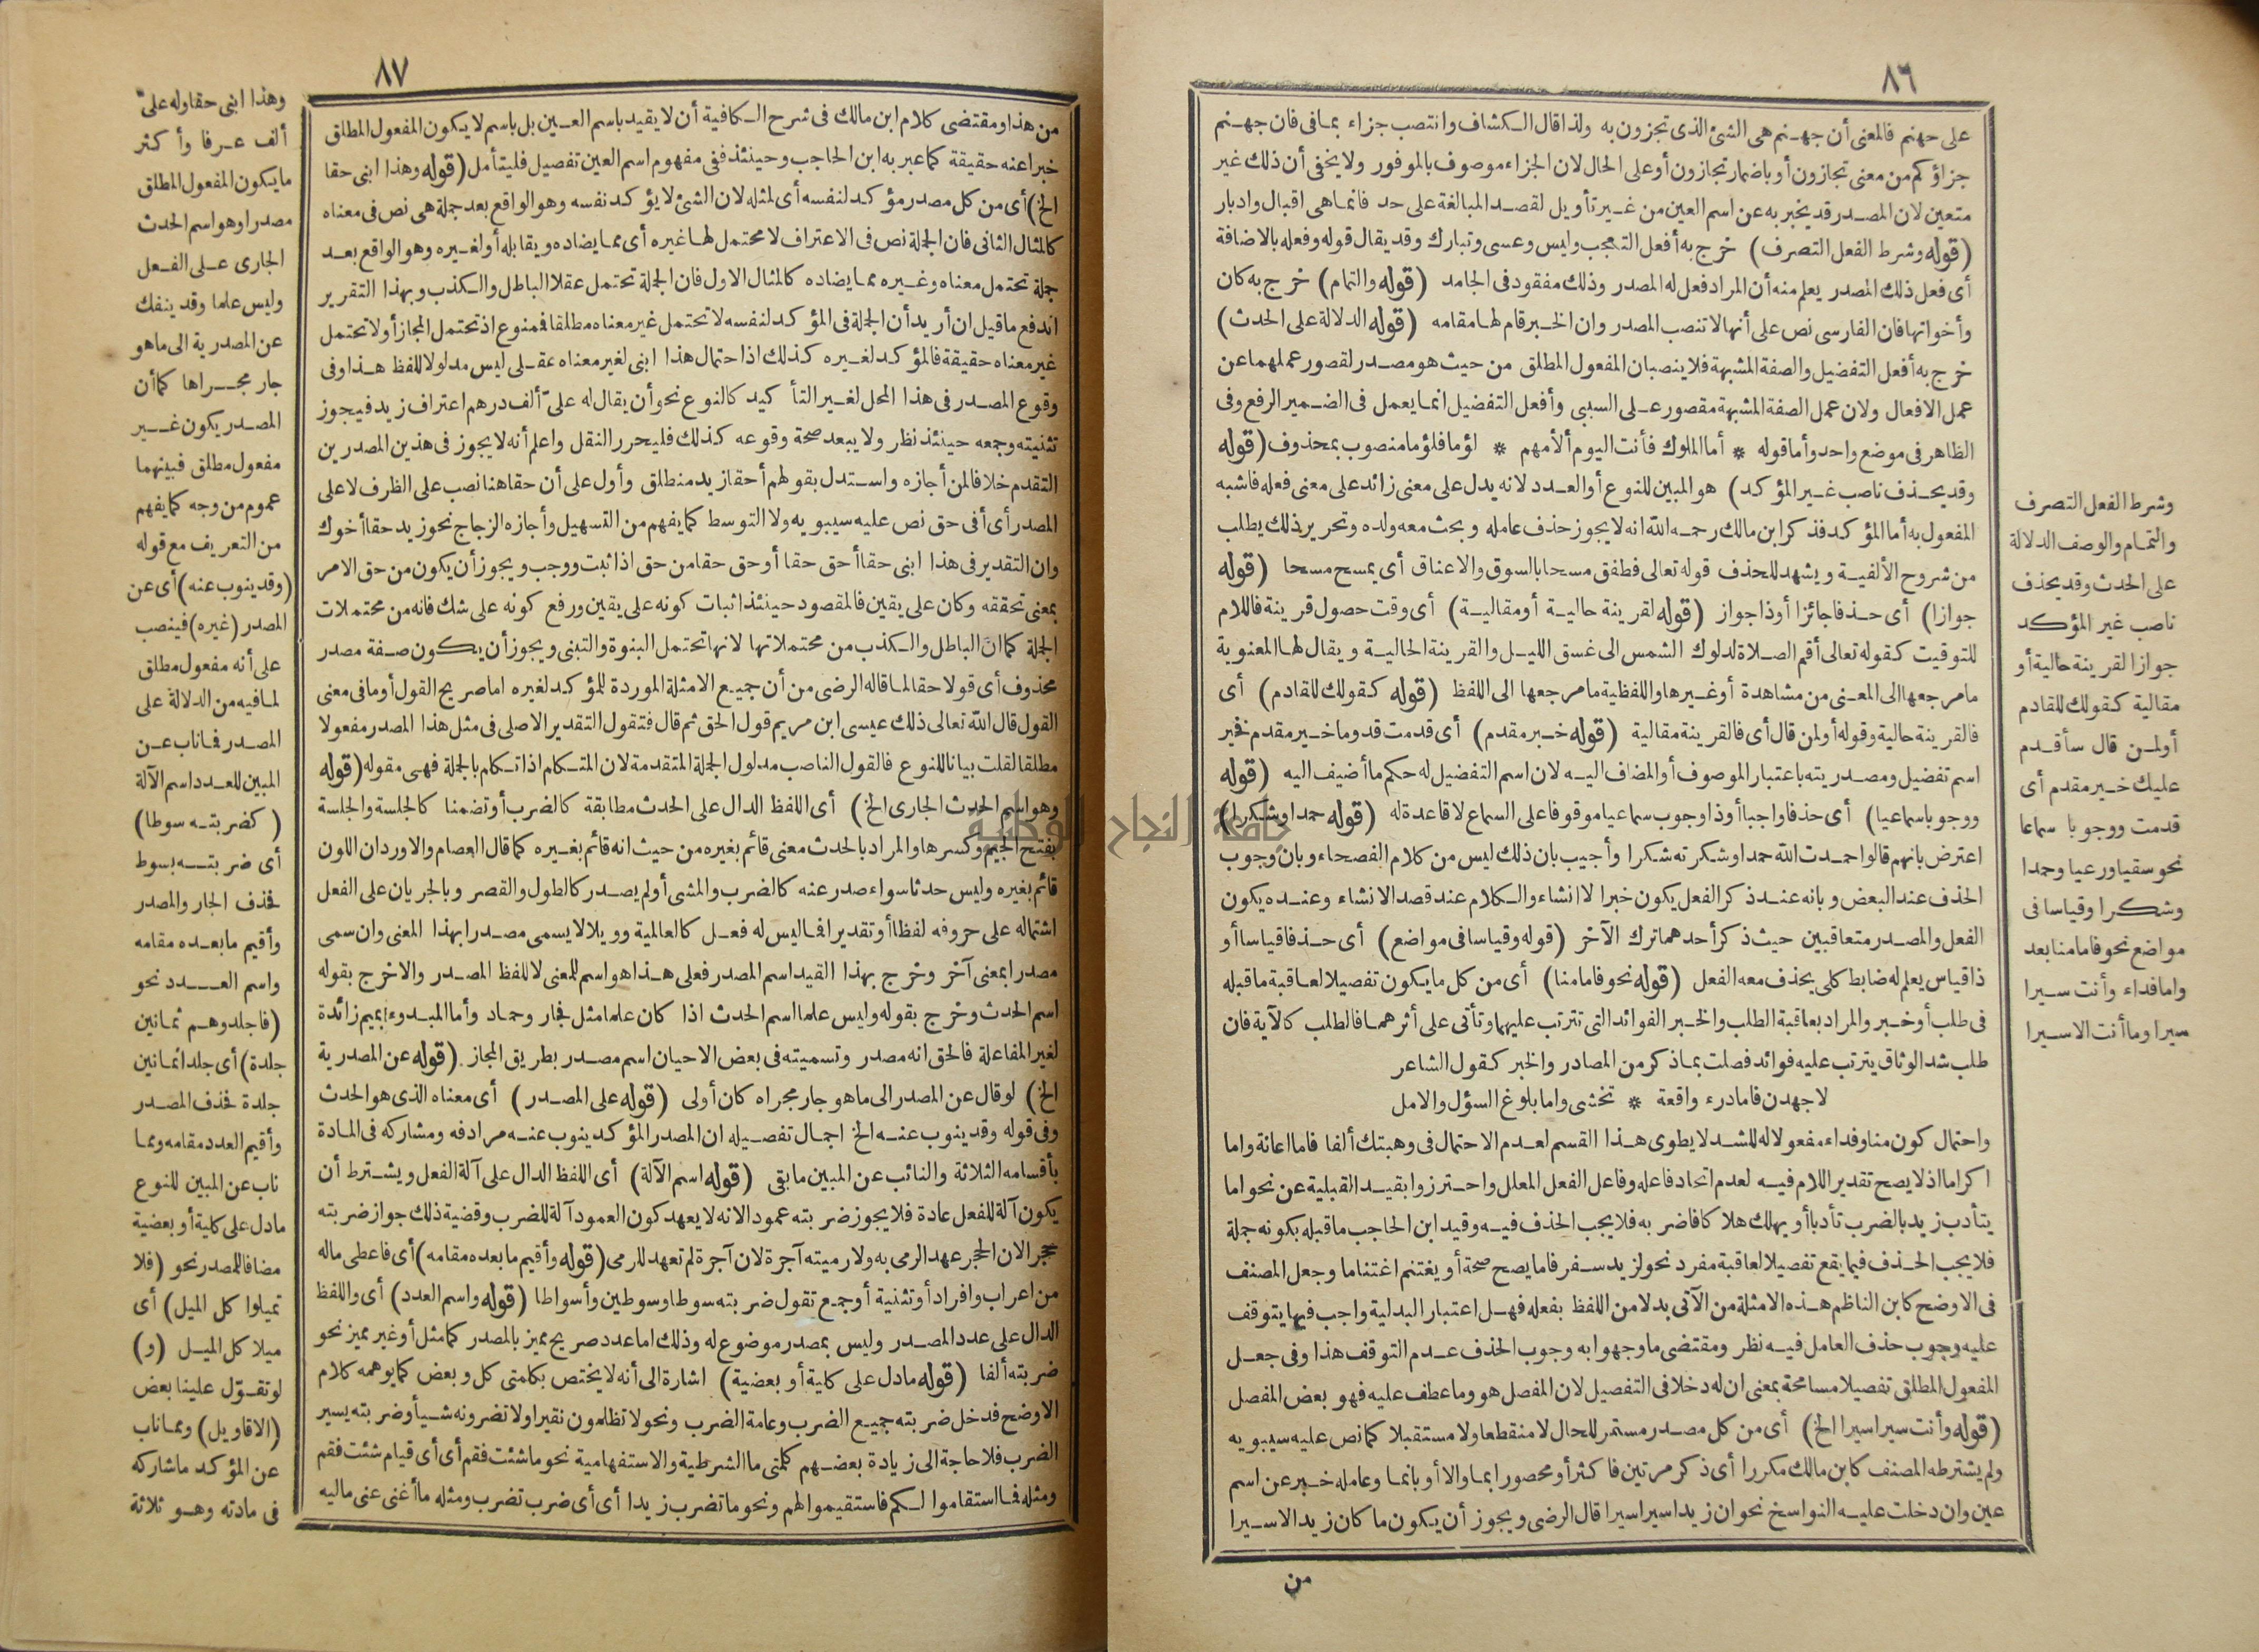 ٨٦
على جهنم فالمعنى أن جهنم هى الشئ الذى تجزون به ولذا قال الكشاف وانتصب جزاء بما فى فان جهنم
جزاؤكم من معنى تجازون أو باضمار تجازون أو على الحال لان الجزاء موصوف بالموفور ولا يخفى أن ذلك غير
متعين لان المصدر قد يخبر به عن اسم العين من غير تأويل لقصد المبالغة على حد فانما هى اقبال وادبار
(قوله وشرط الفعل التصرف) خرج به أفعل التعجب وليس وعسى وتبارك وقد يقال قوله وفعله بالاضافة
أى فعل ذلك المصدر يعلم منه أن المراد فعل له المصدر وذلك مفقود فى الجامد (قوله والتمام) خرج به كان
وأخواتها فان الفارسى نص على أنها لا تنصب المصدر وان الخبر قام لها مقامه (قوله الدلالة على الحدث)
خرج به أفعل التفضيل والصفة المشبهة فلا ينصبان المفعول المطلق من حيث هو مصدر لقصور عملهما عن
عمل الافعال ولان عمل الصفة المشبهة مقصور على السببى وأفعل التفضيل انما يعمل فى الضمير الرفع وفى
الظاهر فى موضع واحد وأما قوله * أما الملوك فأنت اليوم ألأمهم * لؤما فلؤما منصوب بمحذوف (قوله
وقد يحذف ناصب غير المؤكد) هو المبين للنوع أو العدد لانه يدل على معنى زائد على معنى فعله فاشبه
المفعول به أما المؤكد فذكر ابن مالك رحمه الله انه لا يجوز حذف عامله وبحث معه ولده وتحرير ذلك يطلب
من شروح الألفية ويشهد للحذف قوله تعالى فطفق مسحا بالسوق والاعناق أى يمسح مسحا (قوله
جوازا) أى حذفا جائزا أو ذا جواز (قوله لقرينة حالية أو مقالية) أى وقت حصول قرينة فاللام
للتوقيت كقوله تعالى أقم الصلاة لدلوك الشمس الى غسق الليل والقرينة الحالية ويقال لها المعنوية
ما مرجعها الى المعنى من مشاهدة أو غيرها واللفظية ما مرجعها الى اللفظ (قوله كقولك للقادم) أى
فالقرينة حالية وقوله أو لمن قال أى فالقرينة مقالية (قوله خير مقدم) أى قدمت قدوما خير مقدم فخير
اسم تفضيل ومصدريته باعتبار الموصوف أو المضاف اليه لان اسم التفضيل له حكم ما أضيف اليه (قوله
ووجوبا سماعيا) أى حذفا واجبا أو ذا وجوب سماعيا موقوفا على السماع لا قاعدة له (قوله حمدا وشكرا)
اعترض بانهم قالوا حمدت الله حمدا وشكرته شكرا وأجيب بان ذلك ليس من كلام الفصحاء وبان وجوب
الحذف عند البعض وبانه عند ذكر الفعل يكون خبرا لا انشاء والكلام عند قصد الانشاء وعنده يكون
الفعل والمصدر متعاقبين حيث ذكر أحدهما ترك الآخر (قوله وقياسا فى مواضع) أى حذفا قياسا أو
ذا قياس يعلم له ضابط كلى يحذف معه الفعل (قوله نحو فاما منا) أى من كل ما يكون تفصيلا لعاقبة ما قبله
فى طلب أو خبر والمراد بعاقبة الطلب والخبر الفوائد التى تترتب عليهما وتأتى على أثرهما فالطلب كالآية فان
طلب شد الوثاق يترتب عليه فوائد فصلت بما ذكر من المصادر والخبر كقول الشاعر
لاجهدن فاما درء واقعة * تخشى واما بلوغ السؤل والامل
واحتمال كون منا وفداء مفعولا له للشد لا يطوى هذا القسم لعدم الاحتمال فى وهبتك ألفا فاما اعانة واما
اكراما اذ لا يصح تقدير اللام فيه لعدم اتحاد فاعله وفاعل الفعل المعلل واحترزوا بقيد القبلية عن نحو اما
يتأدب زيد بالضرب تأدبا أو يهلك هلاكا فاضربه فلا يجب الحذف فيه وقيد ابن الحاجب ما قبله بكونه جملة
فلا يجب الحذف فيما يقع تفصيلا لعاقبة مفرد نحو لزيد سفر فاما يصح صحة أو يغتنم اغتناما وجعل المصنف
فى الاوضح كابن الناظم هذه الامثلة من الآتى بدلا من اللفظ بفعله فهل اعتبار البدلية واجب فيها يتوقف
عليه وجوب حذف العامل فيه نظر ومقتضى ما وجهوا به وجوب الحذف عدم التوقف هذا وفى جعل
المفعول المطلق تفصيلا مسامحة بمعنى ان له دخلا فى التفصيل لان المفصل هو وما عطف عليه فهو بعض المفصل
(قوله وأنت سيرا سيرا الخ) أى من كل مصدر مستمر للحال لا منقطعا ولا مستقبلا كما نص عليه سيبويه
ولم يشترطه المصنف كابن مالك مكررا أى ذكر مرتين فاكثر أو محصورا بما والا أو بانما وعامله خبر عن اسم
عين وان دخلت عليه النواسخ نحو ان زيدا سيرا سيرا قال الرضى ويجوز أن يكون ما كان زيد الا سيرا
من
وشرط الفعل التصرف
والتمام والوصف الدلالة
على الحدث وقد يحذف
ناصب غير المؤكد
جوازا لقرينة حالية أو
مقالية كقولك للقادم
أو لمن قال سأقدم
عليك خير مقدم أى
قدمت ووجوبا سماعا
نحو سقيا ورعيا وحمدا
وشكرا وقياسا فى
مواضع نحو فاما منا بعد
واما فداء وأنت سيرا
سيرا وما أنت الا سيرا
٨٧
من هذا ومقتضى كلام ابن مالك فى شرح الكافية أن لا يقيد باسم العين بل باسم لا يكون المفعول المطلق
خبرا عنه حقيقة كما عبر به ابن الحاجب وحينئذ ففى مفهوم اسم العين تفصيل فليتأمل (قوله وهذا ابنى حقا
الخ) أى من كل مصدر مؤكد لنفسه أى لمثله لان الشئ لا يؤكد نفسه وهو الواقع بعد جملة هى نص فى معناه
كالمثال الثانى فان الجملة نص فى الاعتراف لا محتمل لها غيره أى مما يضاده ويقابله أو لغيره وهو الواقع بعد
جملة تحتمل معناه وغيره مما يضاده كالمثال الاول فان الجملة تحتمل عقلا الباطل والكذب وبهذا التقرير
اندفع ما قيل ان أريد أن الجملة فى المؤكد لنفسه لا تحتمل غير معناه مطلقا فممنوع اذ تحتمل المجاز أو لا تحتمل
غير معناه حقيقة فالمؤكد لغيره كذلك اذ احتمال هذا ابنى لغير معناه عقلى ليس مدلولا للفظ هذا وفى
وقوع المصدر فى هذا المحل لغير التأكيد كالنوع نحو أن يقال له علىّ ألف درهم اعتراف زيد فيجوز
تثنيته وجمعه حينئذ نظر ولا يبعد صحة وقوعه كذلك فليحرر النقل واعلم أنه لا يجوز فى هذين المصدرين
التقدم خلافا لمن أجازه واستدل بقولهم أحقا زيد منطلق وأول على أن حقا هنا نصب على الظرف لا على
المصدر أى أفى حق نص عليه سيبويه ولا التوسط كما يفهم من التسهيل وأجازه الزجاج نحو زيد حقا أخوك
وان التقدير فى هذا ابنى حقا أحق حقا أو حق حقا من حق اذا ثبت ووجب ويجوز أن يكون من حق الامر
بمعنى تحققه وكان على يقين فالمقصود حينئذ اثبات كونه على يقين ورفع كونه على شك فانه من محتملات
الجملة كما ان الباطل والكذب من محتملاتها لانها تحتمل البنوة والتبنى ويجوز أن يكون صفة مصدر
محذوف أى قولا حقا لما قاله الرضى من أن جميع الامثلة الموردة للمؤكد لغيره اما صريح القول أو ما فى معنى
القول قال الله تعالى ذلك عيسى ابن مريم قول الحق ثم قال فتقول التقدير الاصلى فى مثل هذا المصدر مفعولا
مطلقا لقلت بيانا للنوع فالقول الناصب مدلول الجملة المتقدمة لان المتكلم اذا تكلم بالجملة فهى مقوله (قوله
وهو اسم الحدث الجارى الخ) أى اللفظ الدال على الحدث مطابقة كالضرب أو تضمنا كالجلسة والجلسة
بفتح الجيم وكسرها والمراد بالحدث معنى قائم بغيره من حيث انه قائم بغيره كما قال العصام والاورد ان اللون
قائم بغيره وليس حدثا سواء صدر عنه كالضرب والمشى أو لم يصدر كالطول والقصر وبالجريان على الفعل
اشتماله على حروفه لفظا أو تقديرا فما ليس له فعل كالعالمية وويلا لا يسمى مصدرا بهذا المعنى وان سمى
مصدرا بمعنى آخر وخرج بهذا القيد اسم المصدر فعلى هذا هو اسم للمعنى لا للفظ المصدر والا خرج بقوله
اسم الحدث وخرج بقوله وليس علما اسم الحدث اذا كان علما مثل فجار وحماد وأما المبدوء بميم زائدة
لغير المفاعلة فالحق انه مصدر وتسميته فى بعض الاحيان اسم مصدر بطريق المجاز (قوله عن المصدرية
الخ) لو قال عن المصدر الى ما هو جار مجراه كان أولى (قوله على المصدر) أى معناه الذى هو الحدث
وفى قوله وقد ينوب عنه الخ اجمال تفصيله ان المصدر المؤكد ينوب عنه مرادفه ومشاركه فى المادة
بأقسامه الثلاثة والنائب عن المبين ما بقى (قوله اسم الآلة) أى اللفظ الدال على آلة الفعل ويشترط أن
يكون آلة للفعل عادة فلا يجوز ضربته عمودا لانه لا يعهد كون العمود آلة للضرب وقضية ذلك جواز ضربته
حجرا لان الحجر عهد الرمى به ولا رميته آجرة لان آجرة لم تعهد للرمى (قوله وأقيم ما بعده مقامه) أى فاعطى ماله
من اعراب وافراد أو تثنية أو جمع تقول ضربته سوطا وسوطين وأسواطا (قوله واسم العدد) أى واللفظ
الدال على عدد المصدر وليس بمصدر موضوع له وذلك اما عدد صريح مميز بالمصدر كما مثل أو غير مميز نحو
ضربته ألفا (قوله ما دل على كلية أو بعضية) اشارة الى أنه لا يختص بكلمتى كل وبعض كما يوهمه كلام
الاوضح فدخل ضربته جميع الضرب وعامة الضرب ونحو لا تظلمون نقيرا ولا تضرونه شيأ وضربته يسير
الضرب فلا حاجة الى زيادة بعضهم كلمتى ما الشرطية والاستفهامية نحو ما شئت فقم أى أى قيام شئت فقم
ومثله فما استقاموا لكم فاستقيموا لهم ونحو ما تضرب زيدا أى أى ضرب تضرب ومثله ما أغنى عنى ماليه
وهذا ابنى حقا وله علىّ
ألف عرفا وأكثر
ما يكون المفعول المطلق
مصدرا وهو اسم الحدث
الجارى على الفعل
وليس علما وقد ينفك
عن المصدرية الى ما هو
جار مجراها كما أن
المصدر يكون غير
مفعول مطلق فبينهما
عموم من وجه كما يفهم
من التعريف مع قوله
(وقد ينوب عنه) أى عن
المصدر (غيره) فينصب
على أنه مفعول مطلق
لما فيه من الدلالة على
المصدر فما ناب عن
المبين للعدد اسم الآلة
(كضربته سوطا)
أى ضربته بسوط
فحذف الجار والمصدر
وأقيم ما بعده مقامه
واسم العدد نحو
(فاجلدوهم ثمانين
جلدة) أى جلدا ثمانين
جلدة فحذف المصدر
وأقيم العدد مقامه ومما
ناب عن المبين للنوع
ما دل على كلية أو بعضية
مضافا للمصدر نحو (فلا
تميلوا كل الميل) أى
ميلا كل الميل (و)
لو تقوّل علينا بعض
(الاقاويل) ومما ناب
عن المؤكد ما شاركه
فى مادته وهو ثلاثة
جامعة النجاح الوطنية